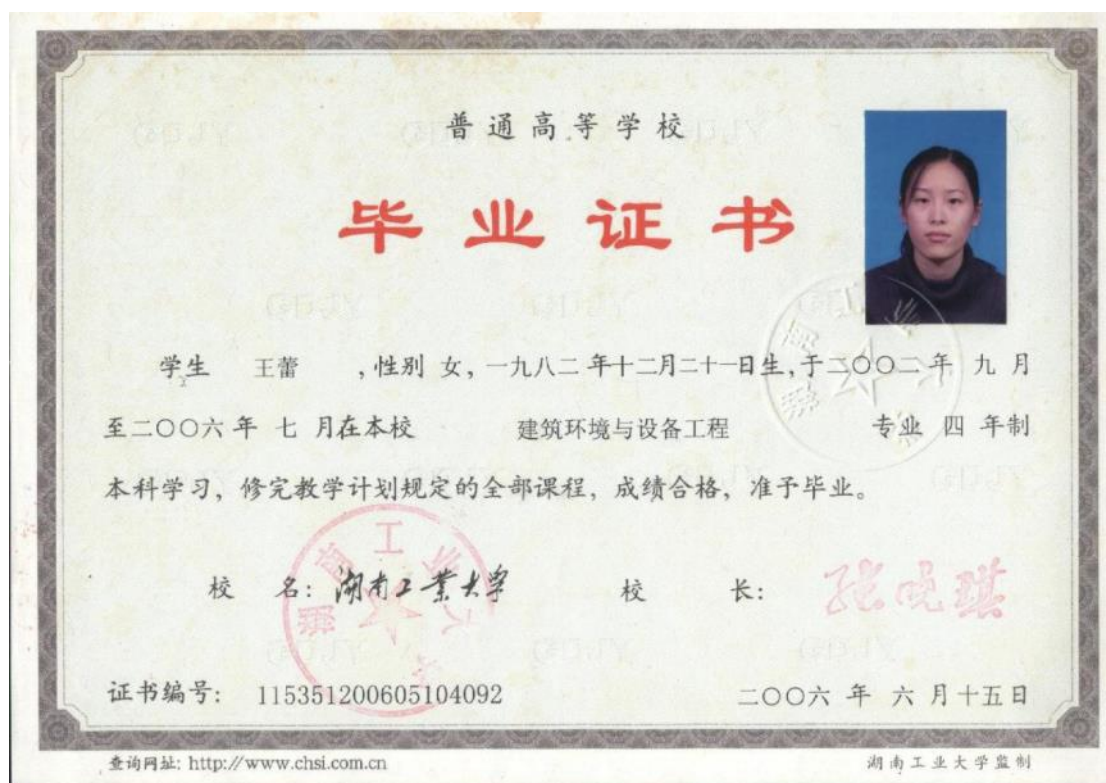 普通高等学校
毕业证书
学生 王蕾 ,性别 女,一九八二年十二月二十一日生,于二〇〇二年 九 月
至二〇〇六年 七 月在本校 建筑环境与设备工程 专业 四 年制
本科学习，修完教学计划规定的全部课程，成绩合格，准予毕业。
校 名：湖南工業大学 校 长：张晓琪
证书编号： 115351200605104092 二〇〇六 年 六 月十五日
查询网址: http://www.chsi.com.cn 湖南工业大学监制